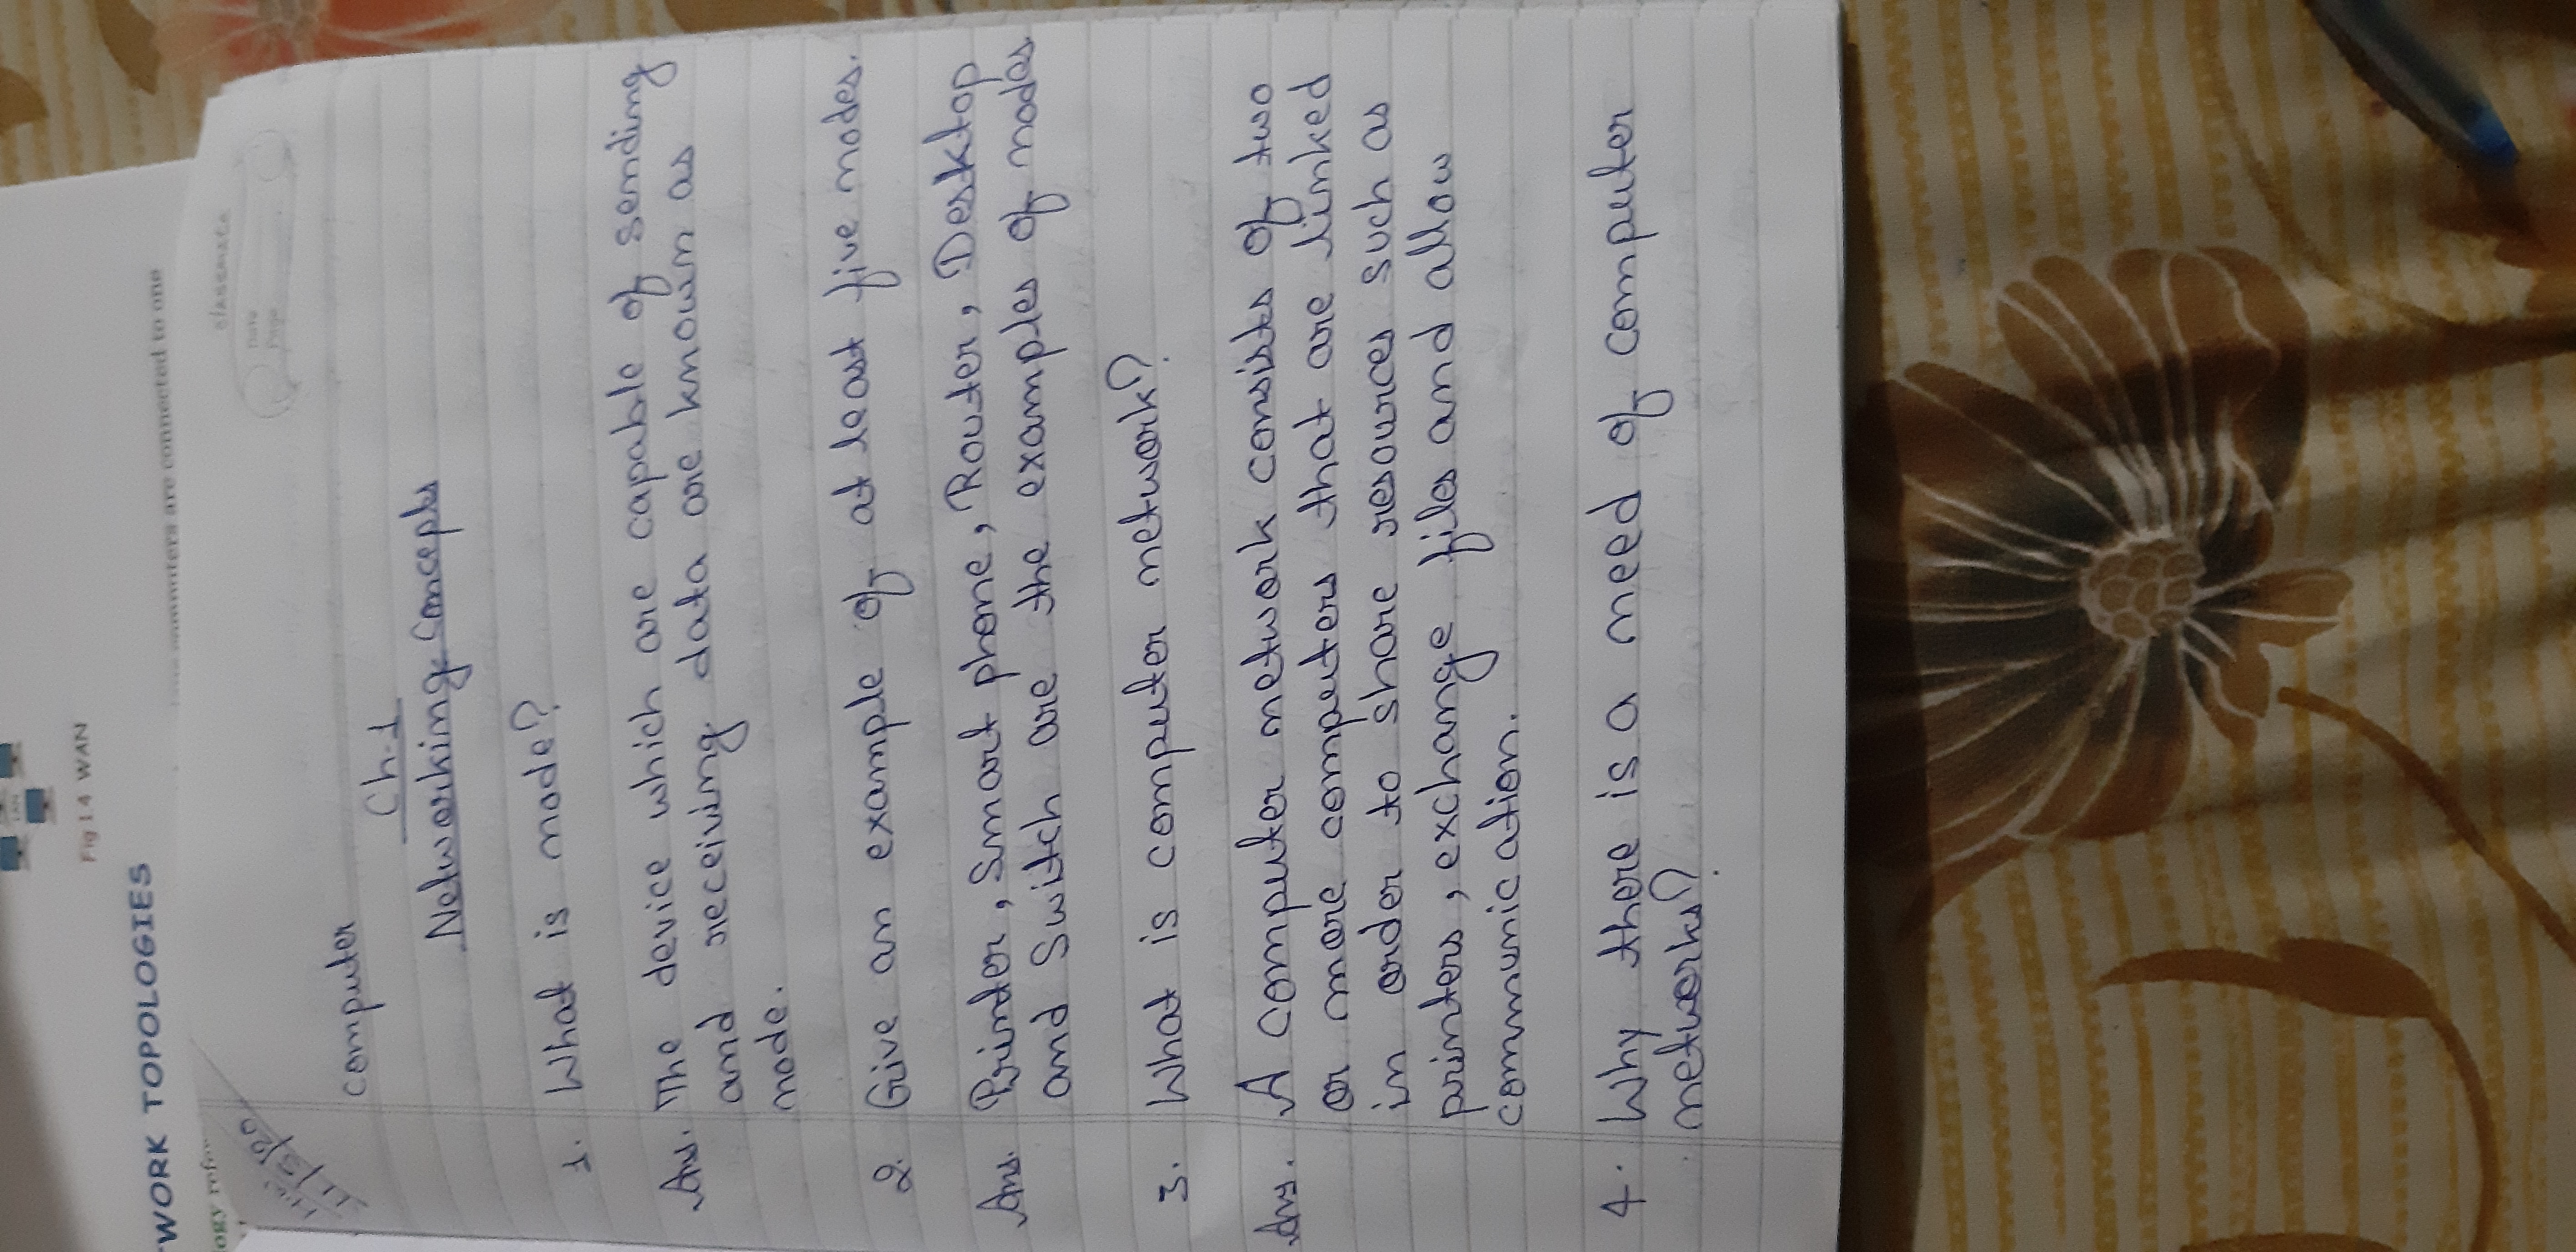 LAN
Fig 1.4 WAN
TWORK TOPOLOGIES
computers are connected to one
logy refer
classmate
Date
Page
H.W
11/5/20
computer
Ch-1
Networking Concepts
1. What is node?
Ans. The device which are capable of sending
and receiving data are known as
node.
2. Give an example of at least five nodes.
Ans. Printer, Smart phone, Router, Desktop
and Switch are the examples of nodes
3. What is computer network?
Ans. A computer network consists of two
or more computers that are linked
in order to share resources such as
printers, exchange files and allow
communication.
4. Why there is a need of computer
networks?